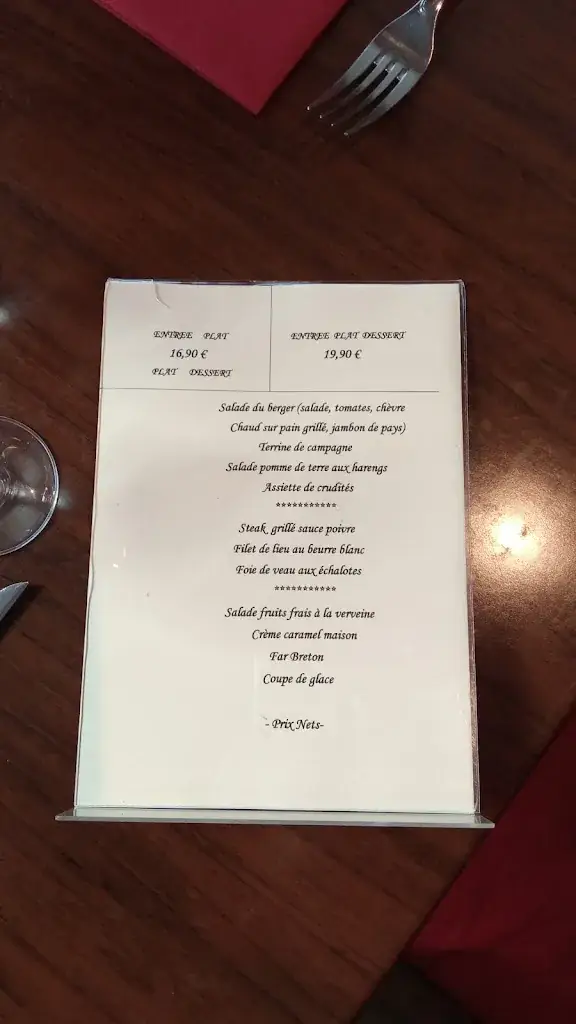 ENTREE PLAT
16,90 €
PLAT DESSERT
ENTREE PLAT DESSERT
19,90 €
Salade du berger (salade, tomates, chèvre
Chaud sur pain grillé, jambon de pays)
Terrine de campagne
Salade pomme de terre aux harengs
Assiette de crudités
***********
Steak grillé sauce poivre
Filet de lieu au beurre blanc
Foie de veau aux échalotes
***********
Salade fruits frais à la verveine
Crème caramel maison
Far Breton
Coupe de glace
- Prix Nets-